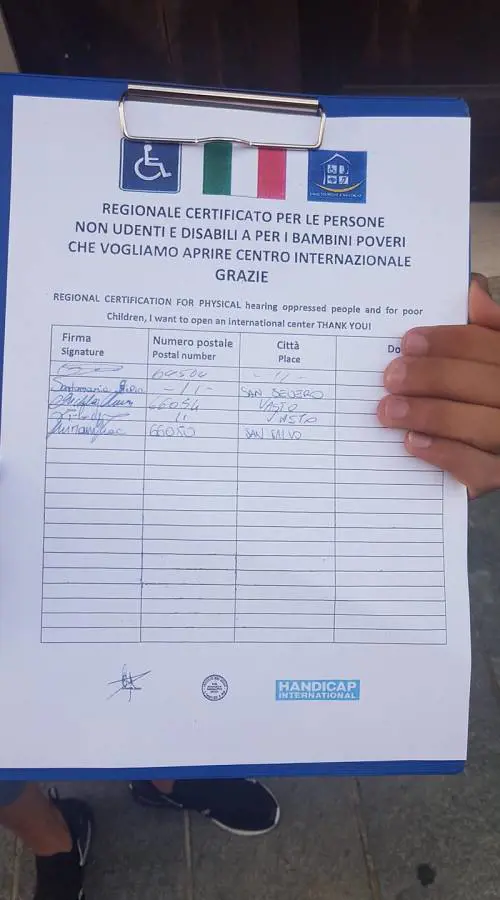 REGIONALE CERTIFICATO PER LE PERSONE
NON UDENTI E DISABILI A PER I BAMBINI POVERI
CHE VOGLIAMO APRIRE CENTRO INTERNAZIONALE
GRAZIE
REGIONAL CERTIFICATION FOR PHYSICAL hearing oppressed people and for poor
Children, I want to open an international center THANK YOU!
Firma Numero postale Città Do
Signature Postal number Place
- 11 -
Santamaria - 11 - SAN SEVERO
66054 VASTO
11 VASTO
66050 SAN SALVO
HANDICAP
INTERNATIONAL